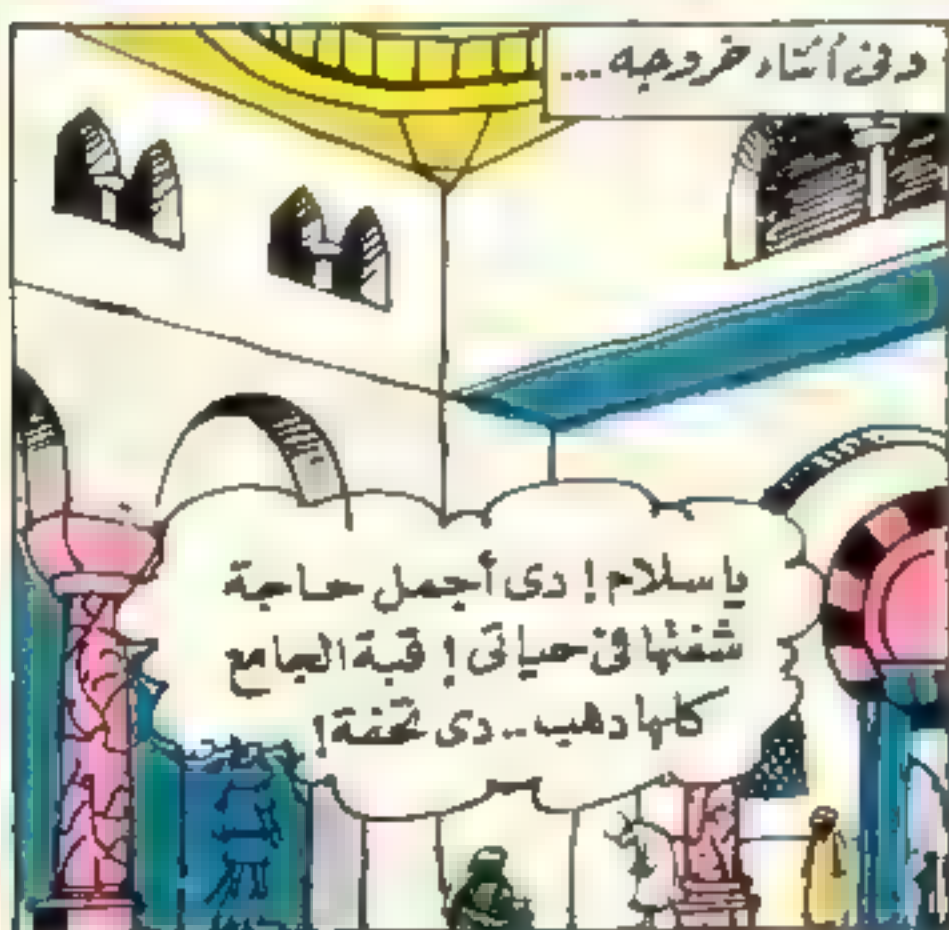 وفى أثناء خروجه...
ياسلام! دى أجمل حاجة
شفتها فى حياتى! قبة الجامع
كلها دهب.. دى تحفة!